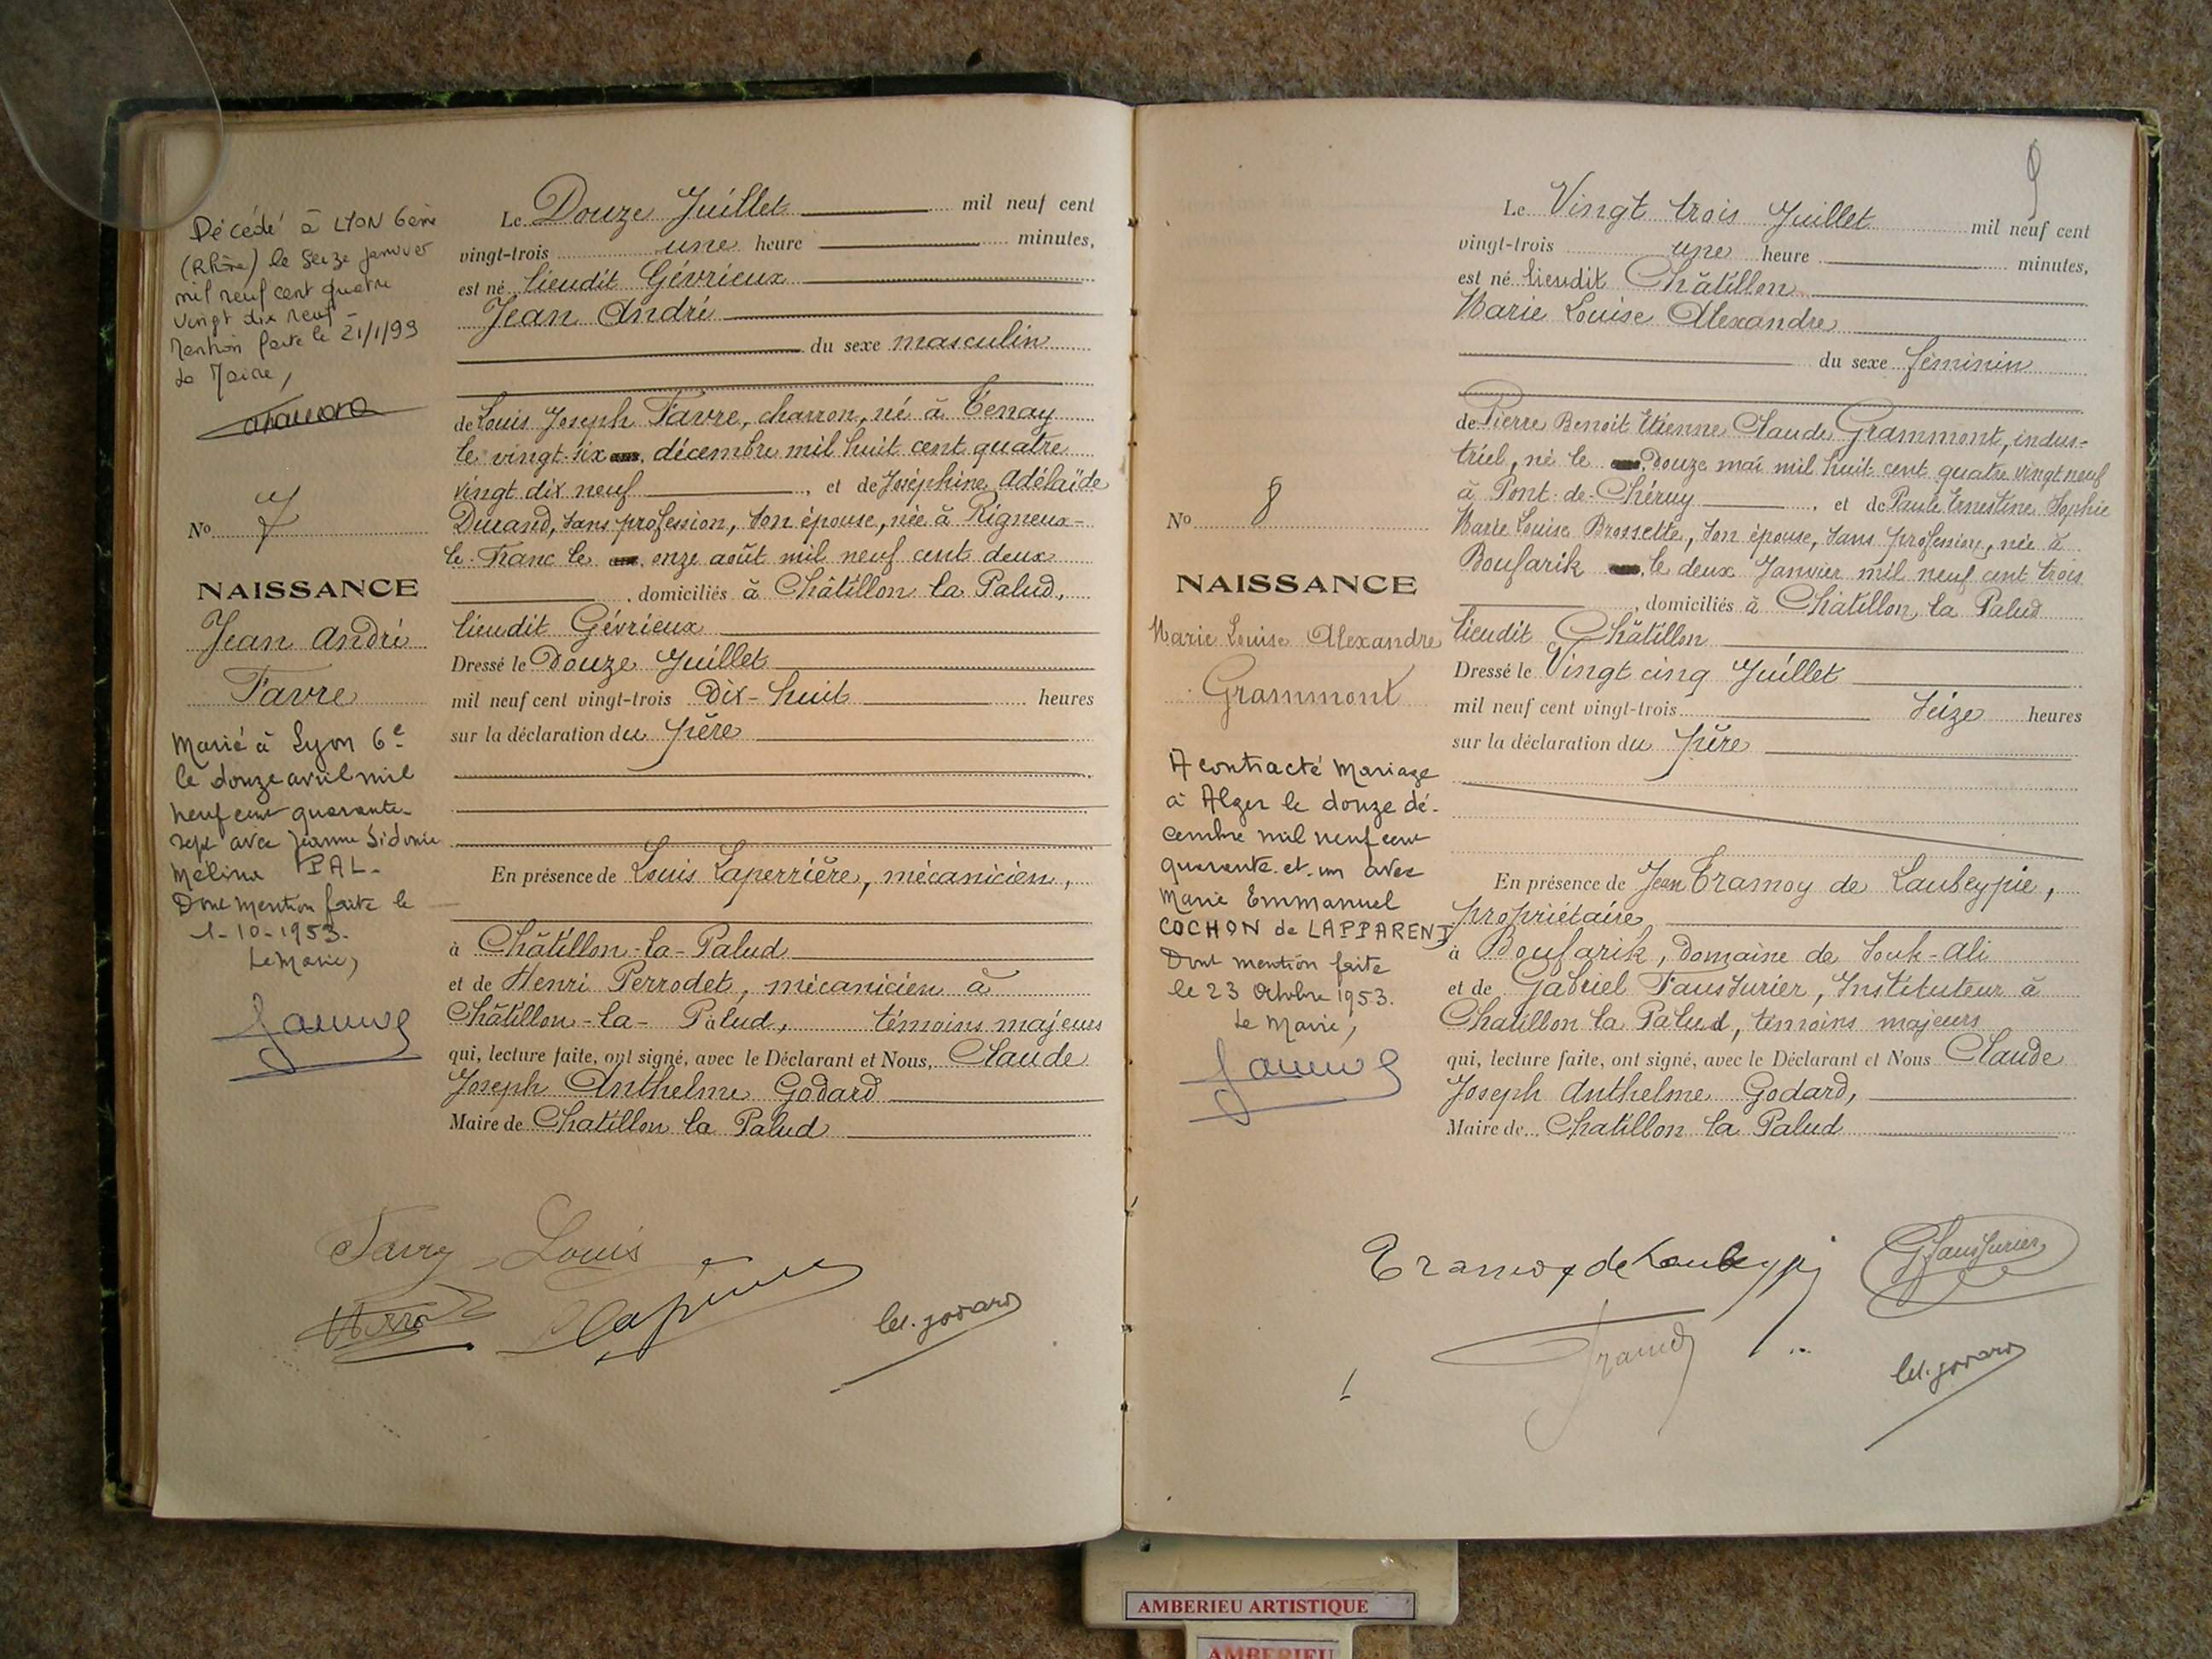 Décédé à LYON 6ème
(Rhône) le seize janvier
mil neuf cent quatre
vingt dix neuf -
Mention faite le 21/1/99
Le Maire,
No 7
NAISSANCE
Jean André
Favre
Marié à Lyon 6e
le douze avril mil
neuf cent quarante-
sept avec Jeanne Sidonie
Mélina PAL-
Dont mention faite le
1-10-1953.
Le Maire,
Le Douze Juillet mil neuf cent
vingt-trois une heure minutes,
est né lieudit Gévrieux
Jean André
du sexe masculin
de Louis Joseph Favre, charron, né à Tenay
le vingt-six décembre mil huit cent quatre
vingt dix neuf, et de Joséphine Adélaïde
Durand, sans profession, son épouse, née à Rigneux-
le-Franc le onze août mil neuf cent deux
, domiciliés à Châtillon la Palud,
lieudit Gévrieux
Dressé le Douze Juillet
mil neuf cent vingt-trois Dix-huit heures
sur la déclaration du père
En présence de Louis Laperrière, mécanicien,
à Châtillon-la-Palud
et de Henri Perrodet, mécanicien à
Châtillon-la-Palud, témoins majeurs
qui, lecture faite, ont signé, avec le Déclarant et Nous, Claude
Joseph Anthelme Godard
Maire de Chatillon la Palud
Louis
9
No 8
NAISSANCE
Marie Louise Alexandre
Grammont
A contracté Mariage
à Alger le douze dé-
cembre mil neuf cent
quarante-et-un avec
Marie Emmanuel
COCHON de LAPPARENT
Dont mention faite
le 23 Octobre 1953.
Le Maire,
Le Vingt trois Juillet mil neuf cent
vingt-trois une heure minutes,
est né lieudit Châtillon
Marie Louise Alexandre
du sexe féminin
de Pierre Benoit Etienne Claude Grammont, indus-
triel, né le Douze mai mil huit cent quatre vingt neuf
à Pont-de-Chéruy, et de Paule Ernestine Sophie
Marie Louise Brossette, son épouse, sans profession, née à
Boufarik le deux Janvier mil neuf cent trois
, domiciliés à Châtillon la Palud
lieudit Châtillon
Dressé le Vingt cinq Juillet
mil neuf cent vingt-trois Seize heures
sur la déclaration du père
En présence de Jean Tramoy de Laubeypie,
propriétaire
à Boufarik, Domaine de Souk-Ali
et de Gabriel Fausturier, Instituteur à
Chatillon la Palud, témoins majeurs
qui, lecture faite, ont signé, avec le Déclarant et Nous Claude
Joseph Anthelme Godard,
Maire de Chatillon la Palud
Tramoy de Laubeypie
AMBERIEU ARTISTIQUE
AMBERIEU